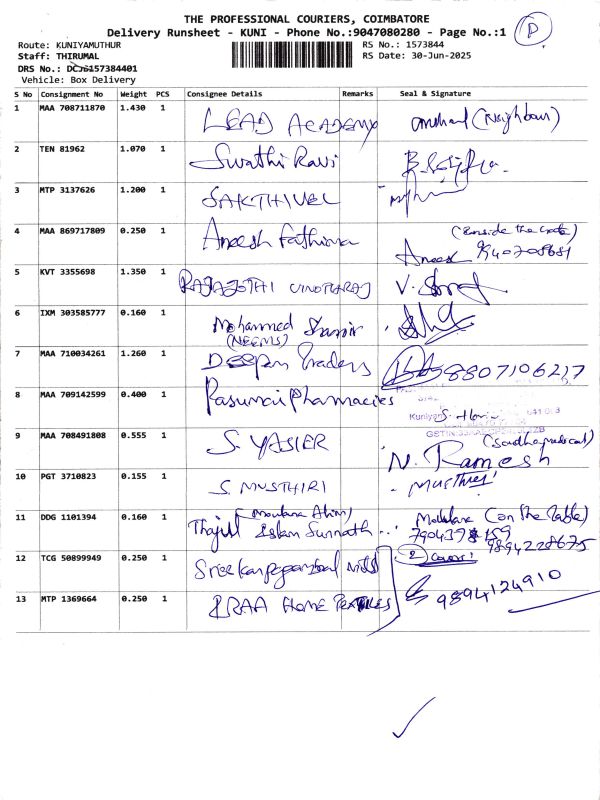 THE PROFESSIONAL COURIERS, COIMBATORE
Delivery Runsheet - KUNI - Phone No.:9047080280 - Page No.:1 P
Route: KUNIYAMUTHUR RS No.: 1573844
Staff: THIRUMAL RS Date: 30-Jun-2025
DRS No.: 157384401
Vehicle: Box Delivery
S No Consignment No Weight PCS Consignee Details Remarks Seal & Signature
1 MAA 708711870 1.430 1 LEAD ACADEMY (Neighbour)
2 TEN 81962 1.070 1 Swathi Ravi
3 MTP 3137626 1.200 1 SAKTHIVEL
4 MAA 869717809 0.250 1 Aneesh Fathima (Inside the Gate)
Aneesh 9940708681
5 KVT 3355698 1.350 1 RAJAJOTHI VINOTHRAJ V.
6 IXM 303585777 0.160 1 Mohammed Shamir
(NEEMS)
7 MAA 710034261 1.260 1 Deepam Traders 8807106217
8 MAA 709142599 0.400 1 Pharmacies
Kuniyam 641 008
GSTIN:
9 MAA 708491808 0.555 1 S. YASIER N. Ramesh
10 PGT 3710823 0.155 1 S. MUSTHIRI
11 DDG 1101394 0.160 1 Thajul Islam Sunnath (on the Table)
9894228675
12 TCG 50899949 0.250 1 Mills 2 Cover
13 MTP 1369664 0.250 1 HOME 9894124910